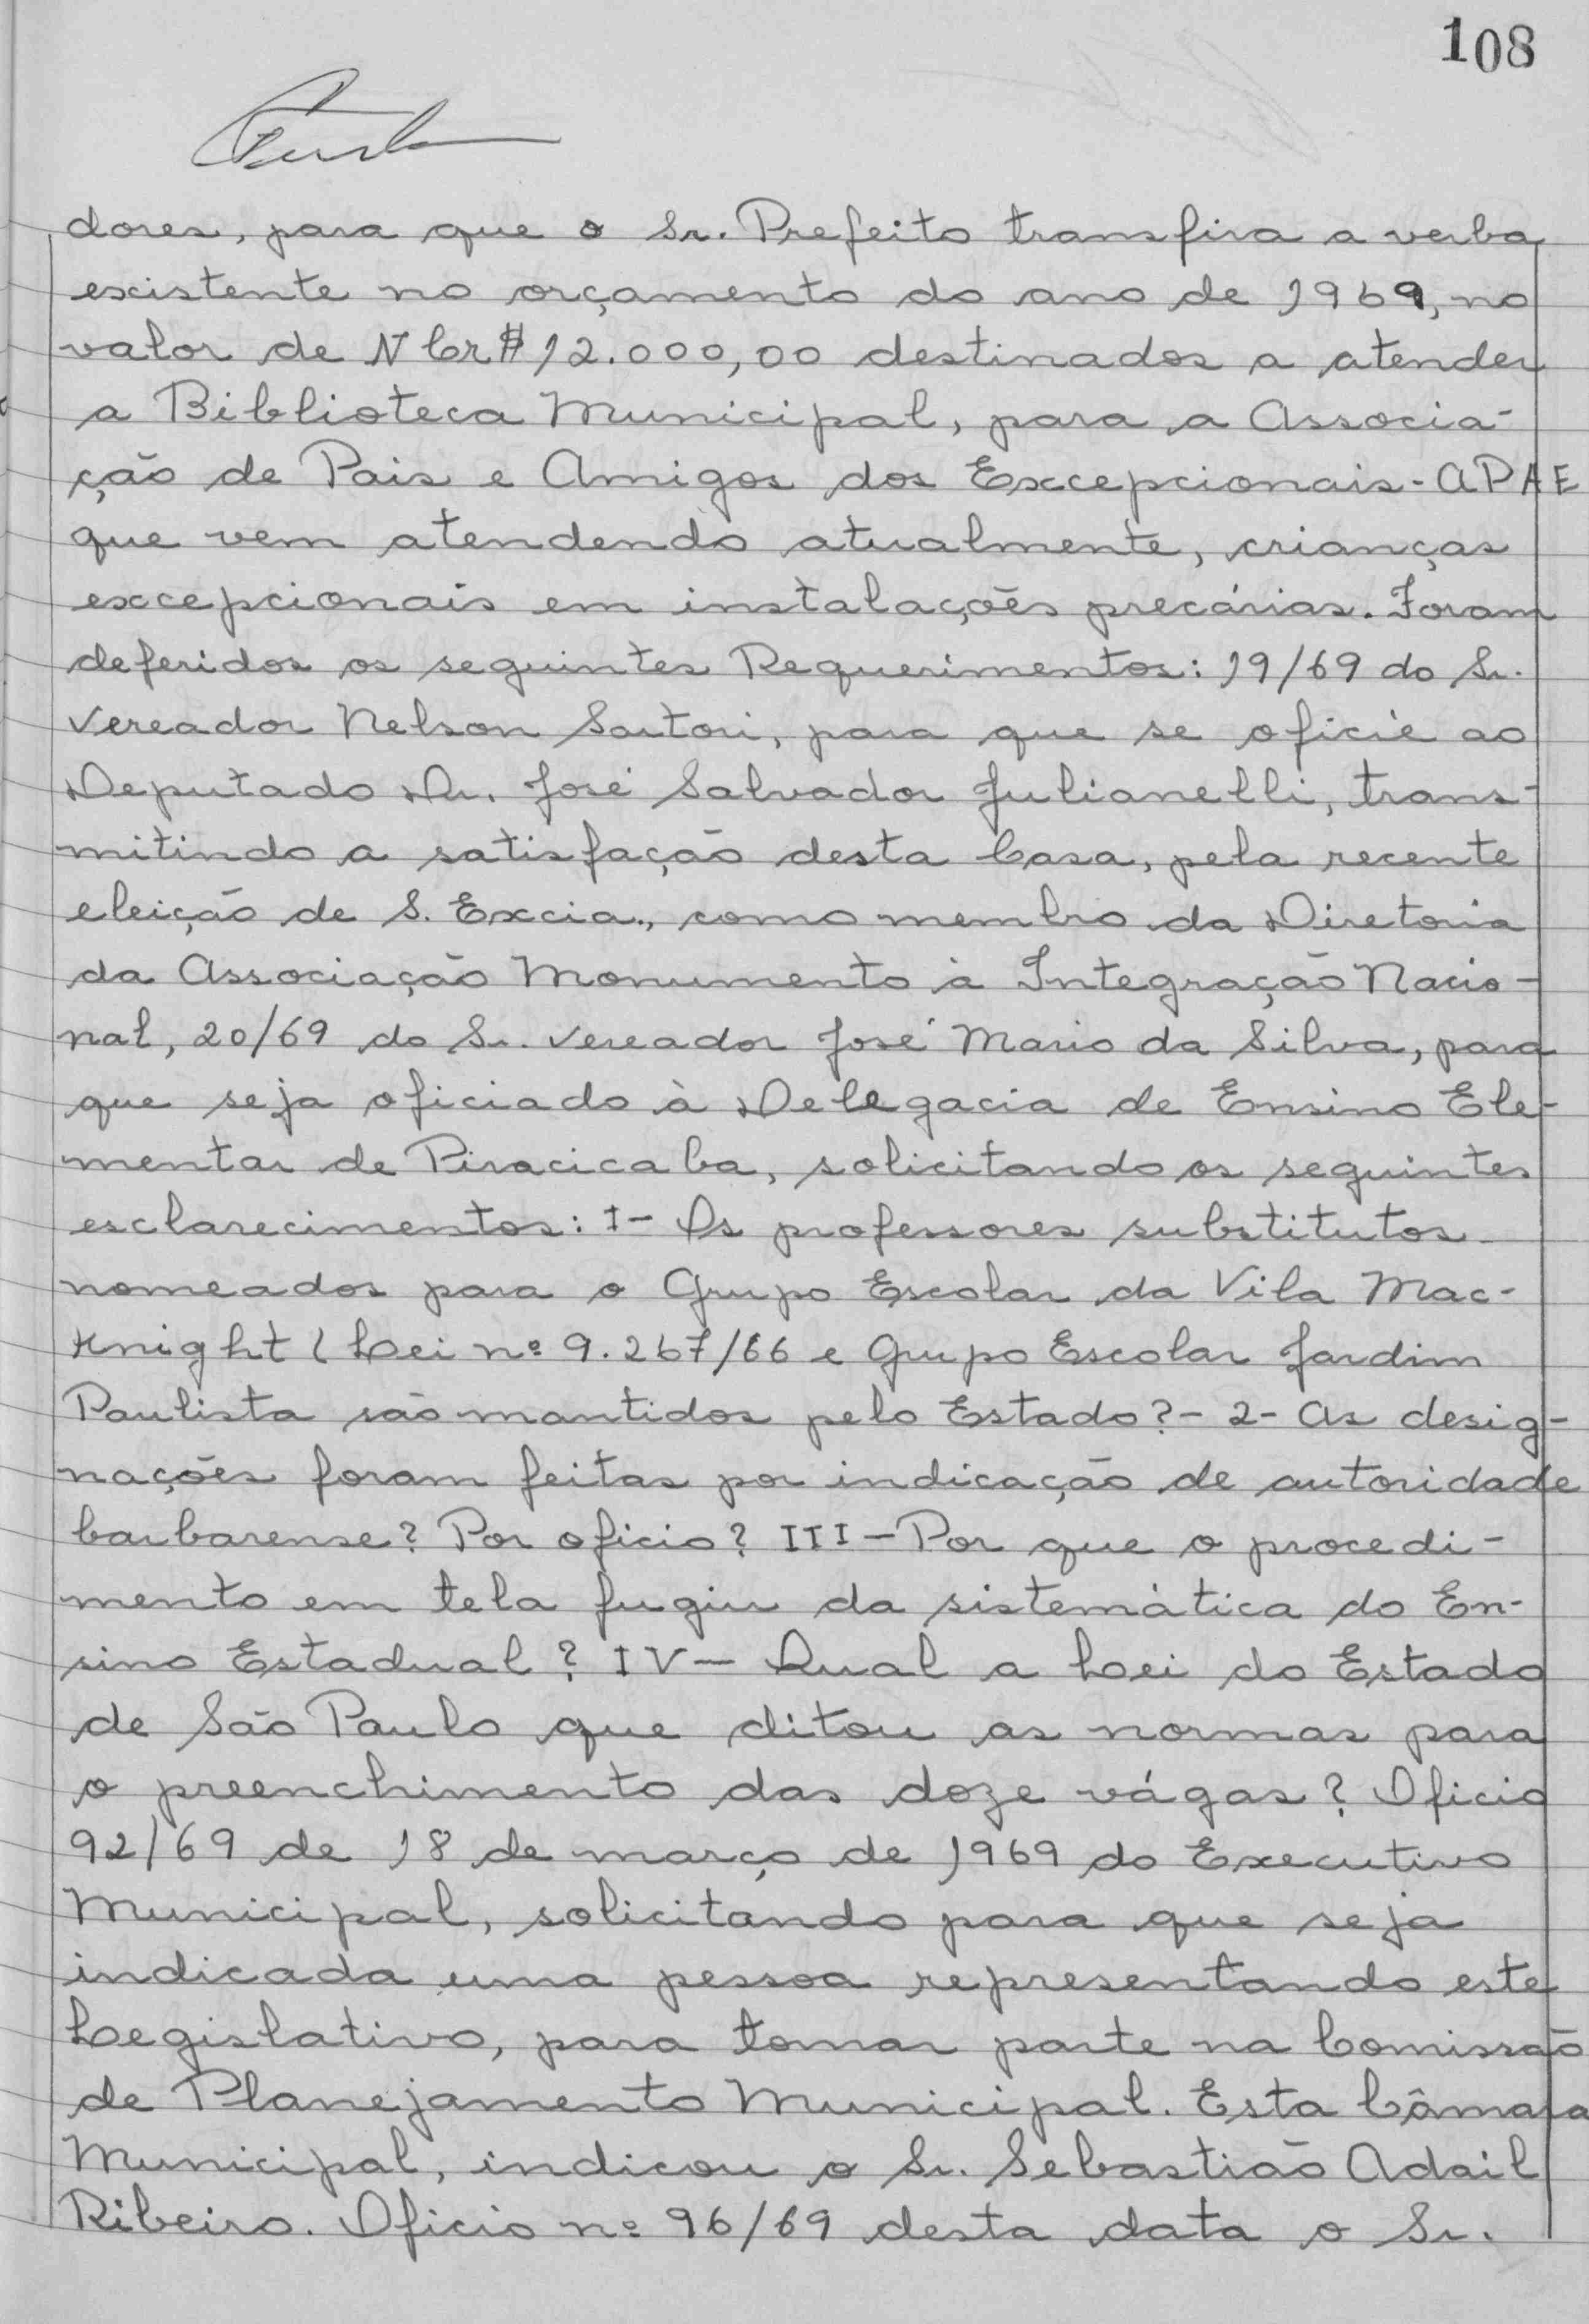 108
dores, para que o Sr. Prefeito transfira a verba
existente no orçamento do ano de 1969, no
valor de NCr$ 12.000,00 destinados a atender
a Biblioteca Municipal, para a Associa-
ção de Pais e Amigos dos Excepcionais - APAE
que vem atendendo atualmente, crianças
excepcionais em instalações precárias. Foram
deferidos os seguintes Requerimentos: 19/69 do Sr.
Vereador Nelson Sartori, para que se oficie ao
Deputado Dr. José Salvador Julianelli, trans-
mitindo a satisfação desta Casa, pela recente
eleição de S. Excia., como membro da Diretoria
da Associação Monumento à Integração Nacio-
nal, 20/69 do Sr. Vereador José Mario da Silva, para
que seja oficiado à Delegacia de Ensino Ele-
mentar de Piracicaba, solicitando os seguintes
esclarecimentos: I - Os professores substitutos
nomeados para o Grupo Escolar da Vila Mac-
Knight (Lei nº 9.267/66 e Grupo Escolar Jardim
Paulista são mantidos pelo Estado? - 2 - As desig-
nações foram feitas por indicação de autoridade
barbarense? Por oficio? III - Por que o procedi-
mento em tela fugiu da sistemática do En-
sino Estadual? IV - Qual a Lei do Estado
de São Paulo que ditou as normas para
o preenchimento das doze vágas? Oficio
92/69 de 18 de março de 1969 do Executivo
Municipal, solicitando para que seja
indicada uma pessoa representando este
Legislativo, para tomar parte na Comissão
de Planejamento Municipal. Esta Câmara
Municipal, indicou o Sr. Sebastião Adail
Ribeiro. Oficio nº 96/69 desta data o Sr.